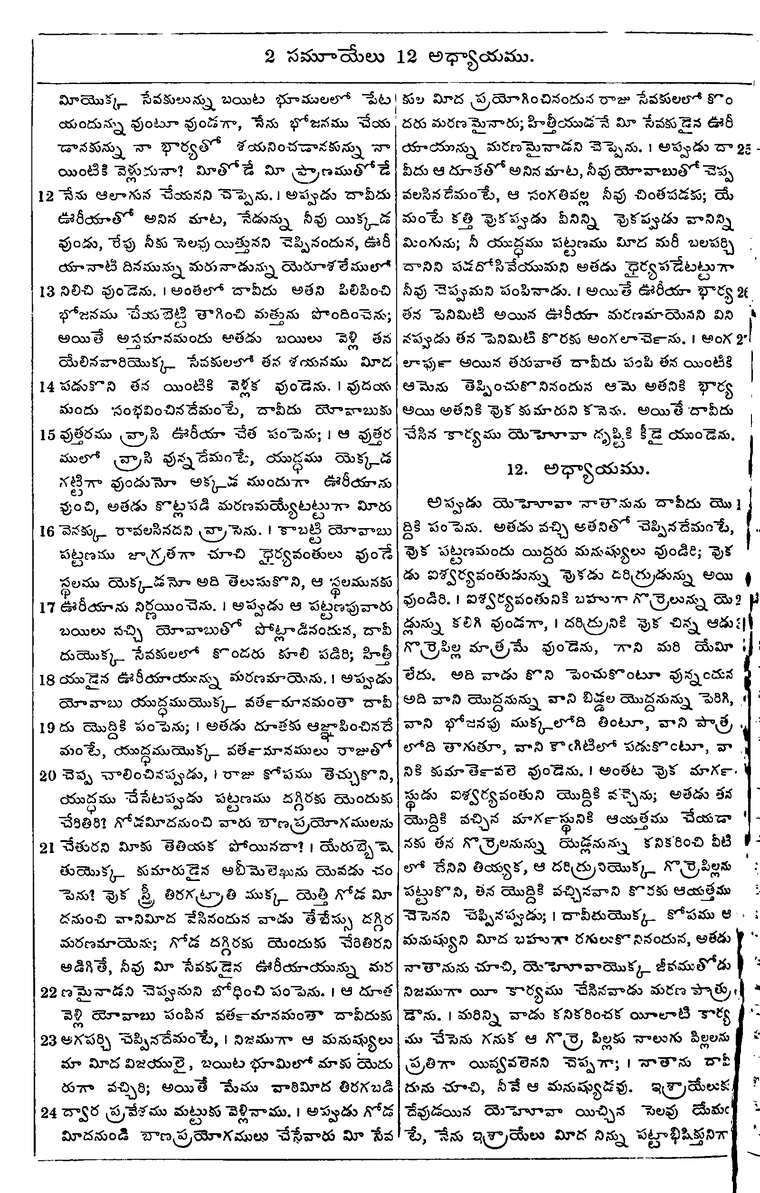 2 సమూయేలు 12 అధ్యాయము.
మియొక్క సేవకులున్ను బయిట భూములలో పేట
యందున్న వుంటూ వుండగా, నేను భోజనము చేయ
డానకున్ను నా భార్యతో శయనించడానకున్ను నా
యింటికి వెళ్లుదునా? మీతోడే మీ ప్రాణముతోడే
12 నేను ఆలాగున చేయనని చెప్పెను. । అప్పుడు దావీదు
ఊరీయాతో అనిన మాట, నేడున్ను నీవు యిక్కడ
వుండు, రేపు నీకు సెలవు యిత్తునని చెప్పినందున, ఊరీ
యానాటి దినమున్ను మరునాడున్ను యెరూశలేములో
13 నిలిచి వుండెను. । అంతలో దావీదు అతని పిలిపించి
భోజనము చేయబెట్టి తాగించి మత్తును పొందించెను;
అయితే అస్తమానమందు అతడు బయిలు వెళ్లి తన
యేలినవారియొక్క సేవకులలో తన శయనము మీద
14 పడుకొని తన యింటికి వెళ్లక వుండెను. । వుదయ
మందు సంభవించినదేమంటే, దావీదు యోవాబుకు
15 వుత్తరము వ్రాసి ఊరీయా చేత పంపెను; । ఆ వుత్తర
ములో వ్రాసి వున్నదేమంటే, యుద్ధము యెక్కడ
గట్టిగా వుండునో అక్కడ ముందుగా ఊరీయాను
వుంచి, అతడు కొట్లపడి మరణమయ్యేటట్టుగా మీరు
16 వెనక్కు రావలసినదని వ్రాసెను. । కాబట్టి యోవాబు
పట్టణము జాగ్రతగా చూచి ధైర్యవంతులు వుండే
స్థలము యెక్కడనో అది తెలుసుకొని, ఆ స్థలమునకు
17 ఊరీయాను నిర్ణయించెను. । అప్పుడు ఆ పట్టణపువారు
బయిలు వచ్చి యోవాబుతో పోట్లాడినందున, దావీ
దుయొక్క సేవకులలో కొందరు కూలి పడిరి; హిత్తీ
18 యుడైన ఊరీయాయున్ను మరణమాయెను. । అప్పుడు
యోవాబు యుద్ధముయొక్క వర్తమానమంతా దావీ
19 దు యొద్దికి పంపెను; । అతడు దూతకు ఆజ్ఞాపించినదే
మంటే, యుద్ధముయొక్క వర్తమానములు రాజుతో
20 చెప్ప చాలించినప్పుడు, । రాజు కోపము తెచ్చుకొని,
యుద్ధము చేసేటప్పుడు పట్టణము దగ్గిరకు యెందుకు
చేరితిరి? గోడమీదనుంచి వారు బాణప్రయోగములను
21 చేతురని మీకు తెలియక పోయినదా? । యేరుబ్బెషె
తుయొక్క కుమారుడైన అబీమెలెఖును యెవడు చం
పెను? వుక స్త్రీ తిరగట్రాతి ముక్క యెత్తి గోడ మీ
దనుంచి వానిమీద వేసినందున వాడు తేబేస్సు దగ్గిర
మరణమాయెను; గోడ దగ్గిరకు యెందుకు చేరితిరని
అడిగితే, నీవు మీ సేవకుడైన ఊరీయాయున్ను మర
22 ణమైనాడని చెప్పుమని బోధించి పంపెను. । ఆ దూత
వెళ్లి యోవాబు పంపిన వర్తమానమంతా దావీదుకు
23 అగపర్చి చెప్పినదేమంటే, । నిజముగా ఆ మనుష్యులు
మా మీద విజయులై, బయిట భూమిలో మాకు యెదు
రుగా వచ్చిరి; అయితే మేము వారిమీద తిరగబడి
24 ద్వార ప్రవేశము మట్టుకు వెళ్లినాము. । అప్పుడు గోడ
మీదనుండి బాణప్రయోగములు చేసేవారు మీ సేవ
కుల మీద ప్రయోగించినందున రాజు సేవకులలో కొం
దరు మరణమైనారు; హిత్తీయుడనే మీ సేవకుడైన ఊరీ
యాయున్ను మరణమైనాడని చెప్పెను. । అప్పుడు దా 25
వీదు ఆ దూతతో అనిన మాట, నీవు యోవాబుతో చెప్ప
వలసినదేమంటే, ఆ సంగతివల్ల నీవు చింతపడకు; యే
మంటే కత్తి వుకప్పుడు వీనిన్ని వుకప్పుడు వానిన్ని
మింగును; నీ యుద్ధము పట్టణము మీద మరీ బలపర్చి
దానిని పడదోసివేయుమని అతడు ధైర్యపడేటట్టుగా
నీవు చెప్పుమని పంపినాడు. । అయితే ఊరీయా భార్య 26
తన పెనిమిటి అయిన ఊరీయా మరణమాయెనని విని
నప్పుడు తన పెనిమిటి కొరకు అంగలార్చెను. । అంగ 27
లార్పు అయిన తరువాత దావీదు పంపి తన యింటికి
ఆమెను తెప్పించుకొనినందున ఆమె అతనికి భార్య
అయి అతనికి వుక కుమారుని కనెను. అయితే దావీదు
చేసిన కార్యము యెహోవా దృష్టికి కీడై యుండెను.
12. అధ్యాయము.
అప్పుడు యెహోవా నాతానును దావీదు యొ 1
ద్దికి పంపెను. అతడు వచ్చి అతనితో చెప్పినదేమంటే,
వుక పట్టణమందు యిద్దరు మనుష్యులు వుండిరి; వుక
డు ఐశ్వర్యవంతుడున్ను వుకడు దరిద్రుడున్ను అయి
వుండిరి. । ఐశ్వర్యవంతునికి బహుగా గొర్రెలున్ను యె 2
డ్లున్ను కలిగి వుండగా, । దరిద్రునికి వుక చిన్న ఆడు 3
గొర్రెపిల్ల మాత్రమే వుండెను, గాని మరి యేమీ
లేదు. అది వాడు కొని పెంచుకొంటూ వున్నందున
అది వాని యొద్దనున్ను వాని బిడ్డల యొద్దనున్ను పెరిగి,
వాని భోజనపు ముక్కలోది తింటూ, వాని పాత్ర
లోది తాగుతూ, వాని కౌగిటిలో పడుకొంటూ, వా
నికి కుమార్తెవలె వుండెను. । అంతట వుక మార్గ
స్థుడు ఐశ్వర్యవంతుని యొద్దికి వచ్చెను; అతడు తన
యొద్దికి వచ్చిన మార్గస్థునికి ఆయత్తము చేయడా
నకు తన గొర్రెలనున్ను యెడ్లనున్ను కనికరించి వీటి
లో దేనిని తియ్యక, ఆ దరిద్రునియొక్క గొర్రెపిల్లను
పట్టుకొని, తన యొద్దికి వచ్చినవాని కొరకు ఆయత్తము
చేసెనని చెప్పినప్పుడు; । దావీదుయొక్క కోపము ఆ
మనుష్యుని మీద బహుగా రగులుకొనినందున, అతడు
నాతానును చూచి, యెహోవాయొక్క జీవముతోడు
నిజముగా యీ కార్యము చేసినవాడు మరణ పాత్రు
డౌను. । మరిన్ని వాడు కనికరించక యీలాటి కార్య
ము చేసెను గనుక ఆ గొర్రె పిల్లకు నాలుగు పిల్లలను
ప్రతిగా యివ్వవలెనని చెప్పగా; । నాతాను దావీ
దును చూచి, నీవే ఆ మనుష్యుడవు. ఇశ్రాయేలుకు
దేవుడయిన యెహోవా యిచ్చిన సెలవు యేమం
టే, నేను ఇశ్రాయేలు మీద నిన్ను పట్టాభిషిక్తునిగా